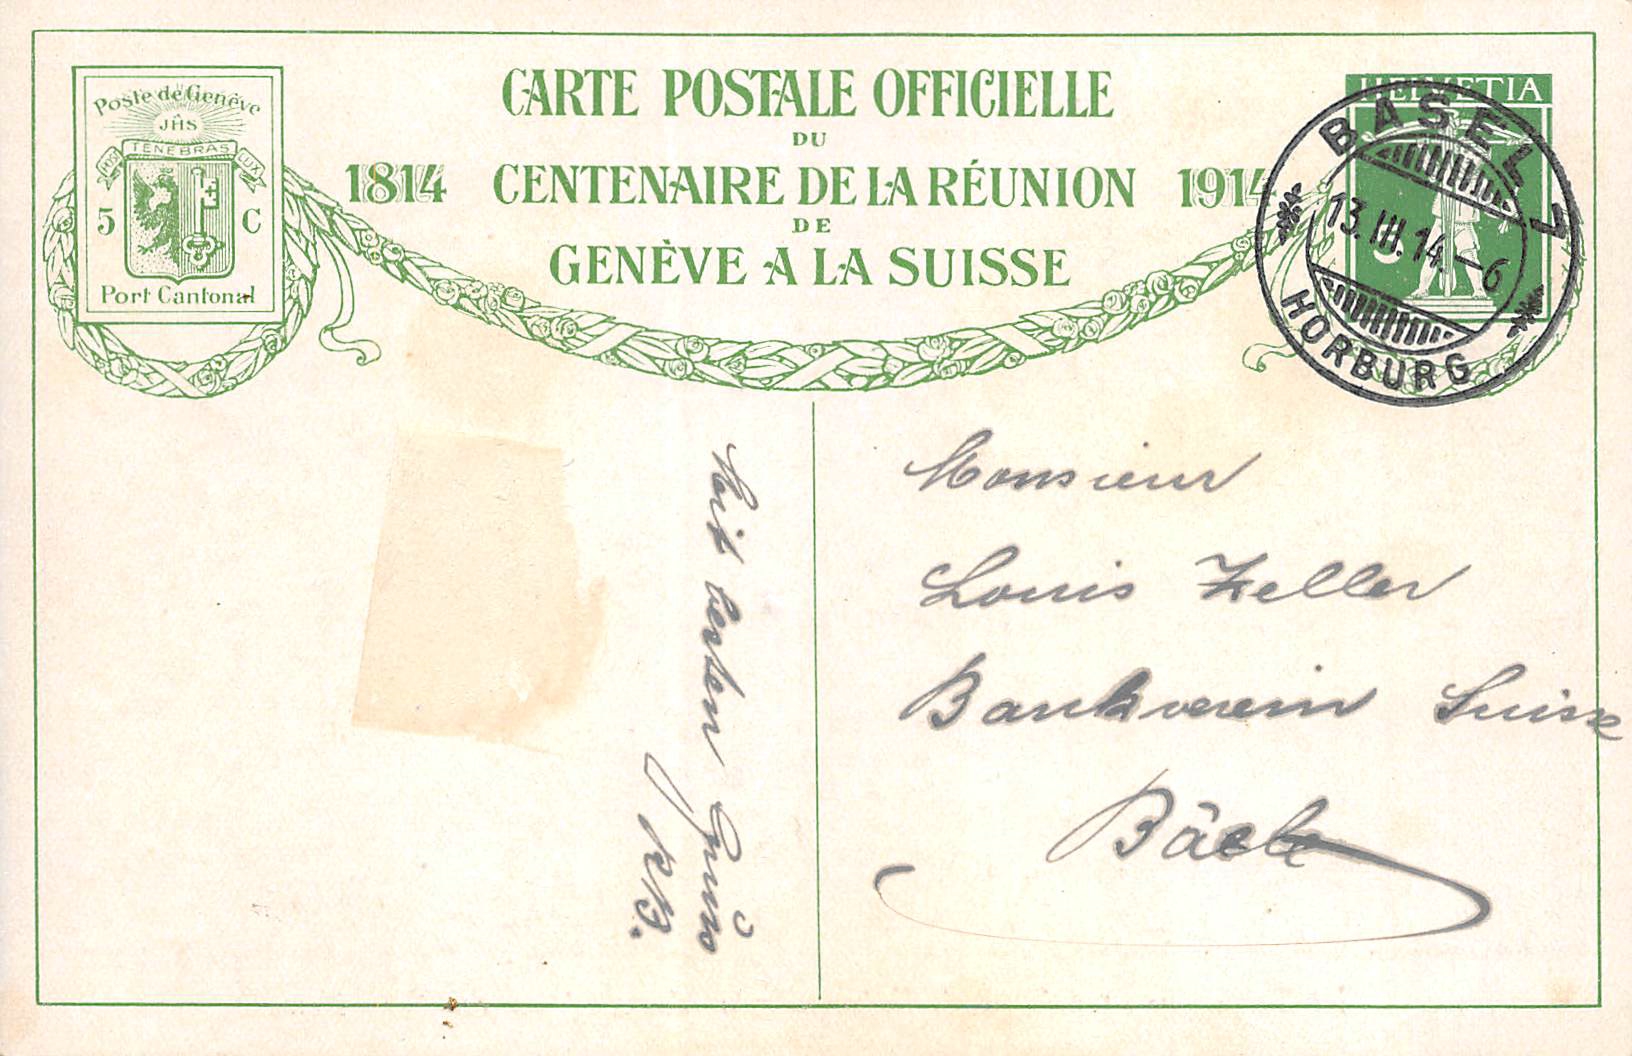 CARTE POSTALE OFFICIELLE
DU
1814 CENTENAIRE DE LA RÉUNION 1914
DE
GENÈVE A LA SUISSE
Poste de Genève
JHS
POST TENEBRAS LUX
5 C
Port Cantonal
HELVETIA
5
BASEL 7
13.III.14.–6
HORBURG
Monsieur
Louis Zeller
Bankverein Suisse
Bâle
Mit besten Grüss